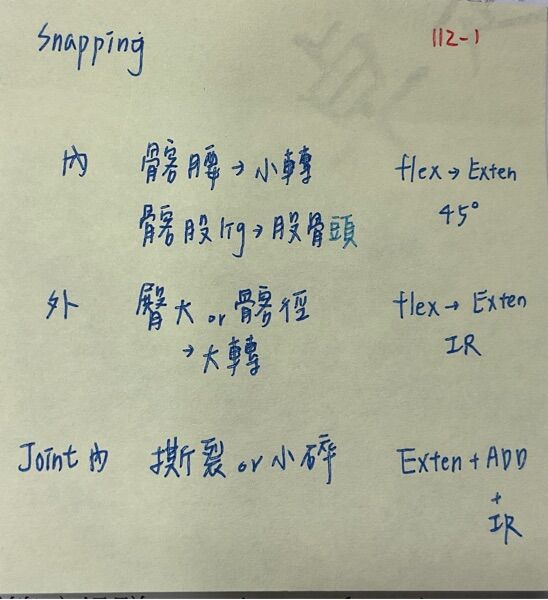 Snapping 112-1
內 髂腰→小轉 flex→Exten
髂股lig→股骨頭 45°
外 臀大 or 髂徑 flex→Exten
→大轉 IR
Joint內 撕裂 or 小碎 Exten+ADD
+
IR